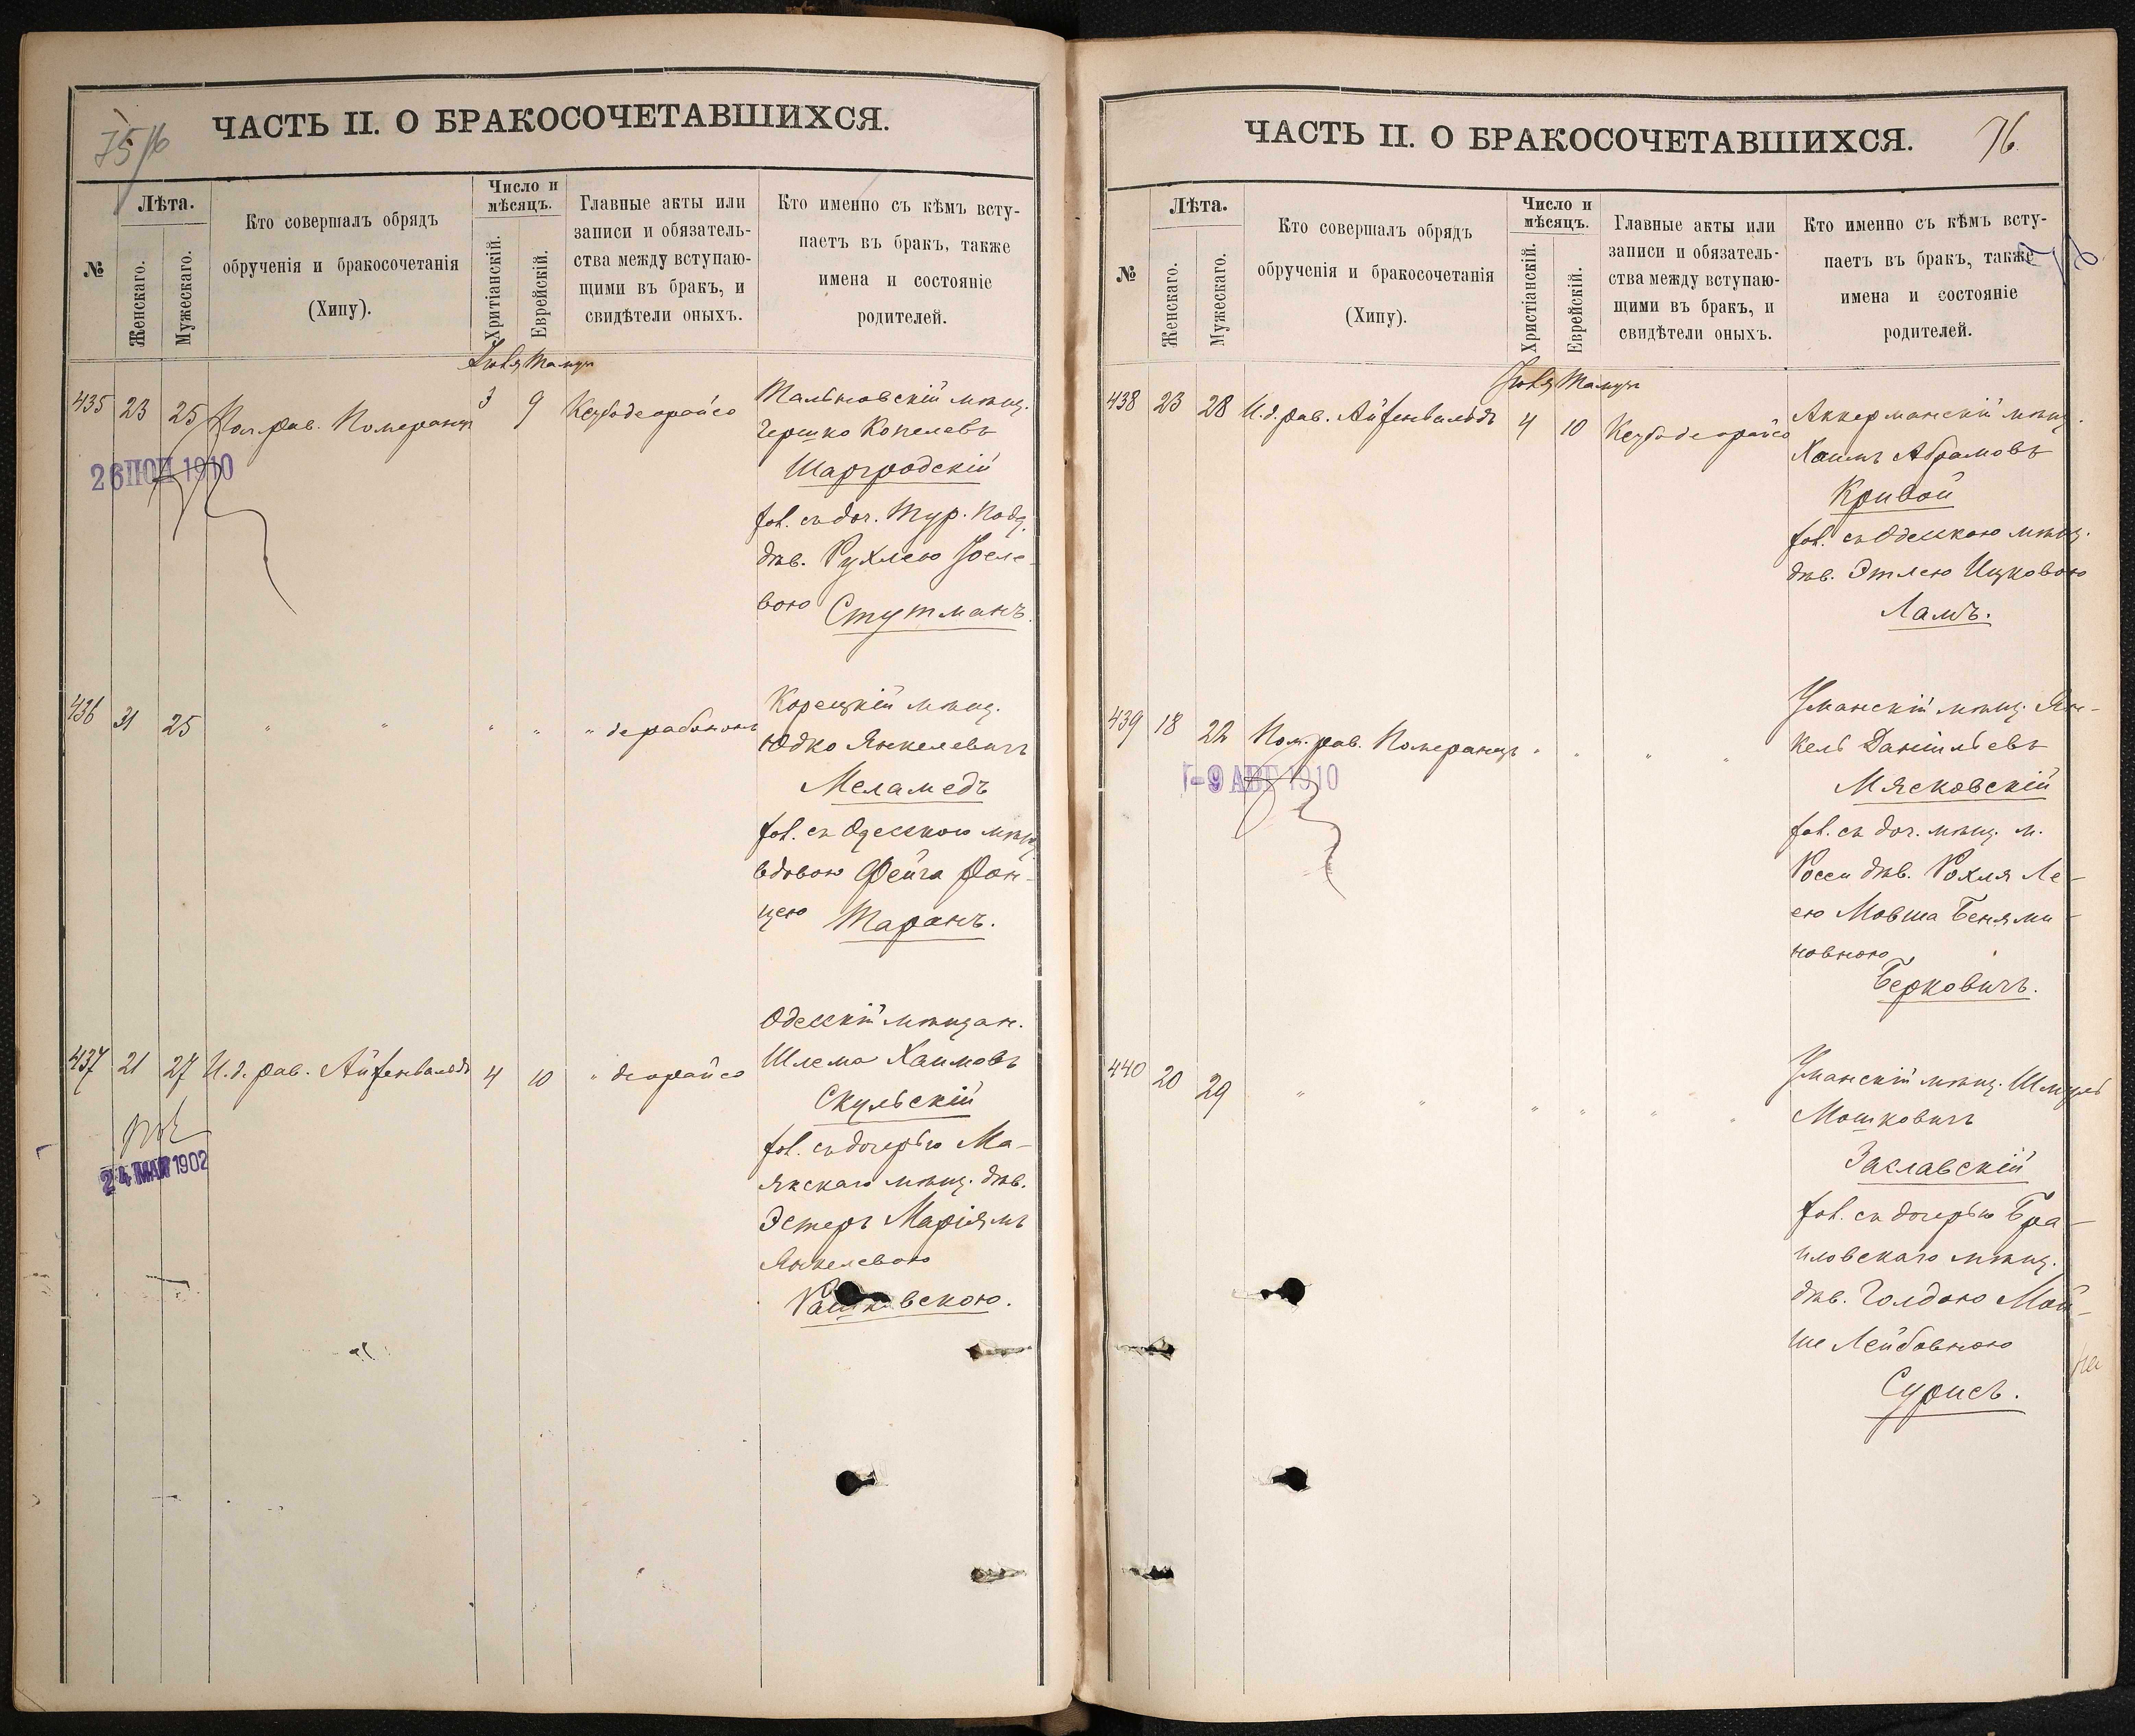 75/76
ЧАСТЬ II. О БРАКОСОЧЕТАВШИХСЯ.
№
Лѣта.
Женскаго.
Мужескаго.
Кто совершалъ обрядъ
обрученія и бракосочетанія
(Хипу).
Число и
мѣсяцъ.
Христіанскій.
Еврейскій.
Главные акты или
записи и обязатель-
ства между вступаю-
щими въ бракъ, и
свидѣтели оныхъ.
Кто именно съ кѣмъ всту-
паетъ въ бракъ, также
имена и состояніе
родителей.
435 23 25 Пом. рав. Померанцъ 3 9 Ксубо деорайсо
26 1910
Тальновскій мѣщ.
Гершко Копелевъ
Шаргродскій
хол. съ доч. Тур. подд.
дѣв. Рухлею Іосе-
вою Стутманъ.
436 31 25 " " " " " дерабононъ
Корецкій мѣщ.
Юдко Янкелевичъ
Меламедъ
хол. съ Одесскою мѣщ.
вдовою Фейга
Таранъ.
437 21 27 И. д. рав. Айзенвальдъ 4 10 " деорайсо
24 МАЯ 1902
Одесскій мѣщан.
Шлема Хаимовъ
Скульскій
хол. съ дочерью Ма-
якскаго мѣщ. дѣв.
Эстеръ Маріямъ
Янкелевою
Рашковскою.
ЧАСТЬ II. О БРАКОСОЧЕТАВШИХСЯ.
76.
№
Лѣта.
Женскаго.
Мужескаго.
Кто совершалъ обрядъ
обрученія и бракосочетанія
(Хипу).
Число и
мѣсяцъ.
Христіанскій.
Еврейскій.
Главные акты или
записи и обязатель-
ства между вступаю-
щими въ бракъ, и
свидѣтели оныхъ.
Кто именно съ кѣмъ всту-
паетъ въ бракъ, также
имена и состояніе
родителей.
438 23 28 И. д. рав. Айзенвальдъ 4 10 Ксубо деорайсо
Аккерманскій мѣщ.
Хаимъ Абрамовъ
Кривой
хол. съ Одесскою мѣщ.
дѣв. Этлею Ицковою
Ламъ.
439 18 22 Пом. рав. Померанцъ " " " "
-9 АВГ 1910
Уманскій мѣщ. Ян-
кель Даніильевъ
Мясковскій
хол. съ доч. мѣщ. м.
дѣв. Рохля Ле-
ею Мовша Беними
новною
Берковичъ.
440 20 29 " " " " " "
Уманскій мѣщ. Шмуль
Мошковичъ
Заславскій
хол. съ дочерью Бра-
иловскаго мѣщ.
дѣв. Голдою Мой-
ше Лейбовною
Сурисъ.